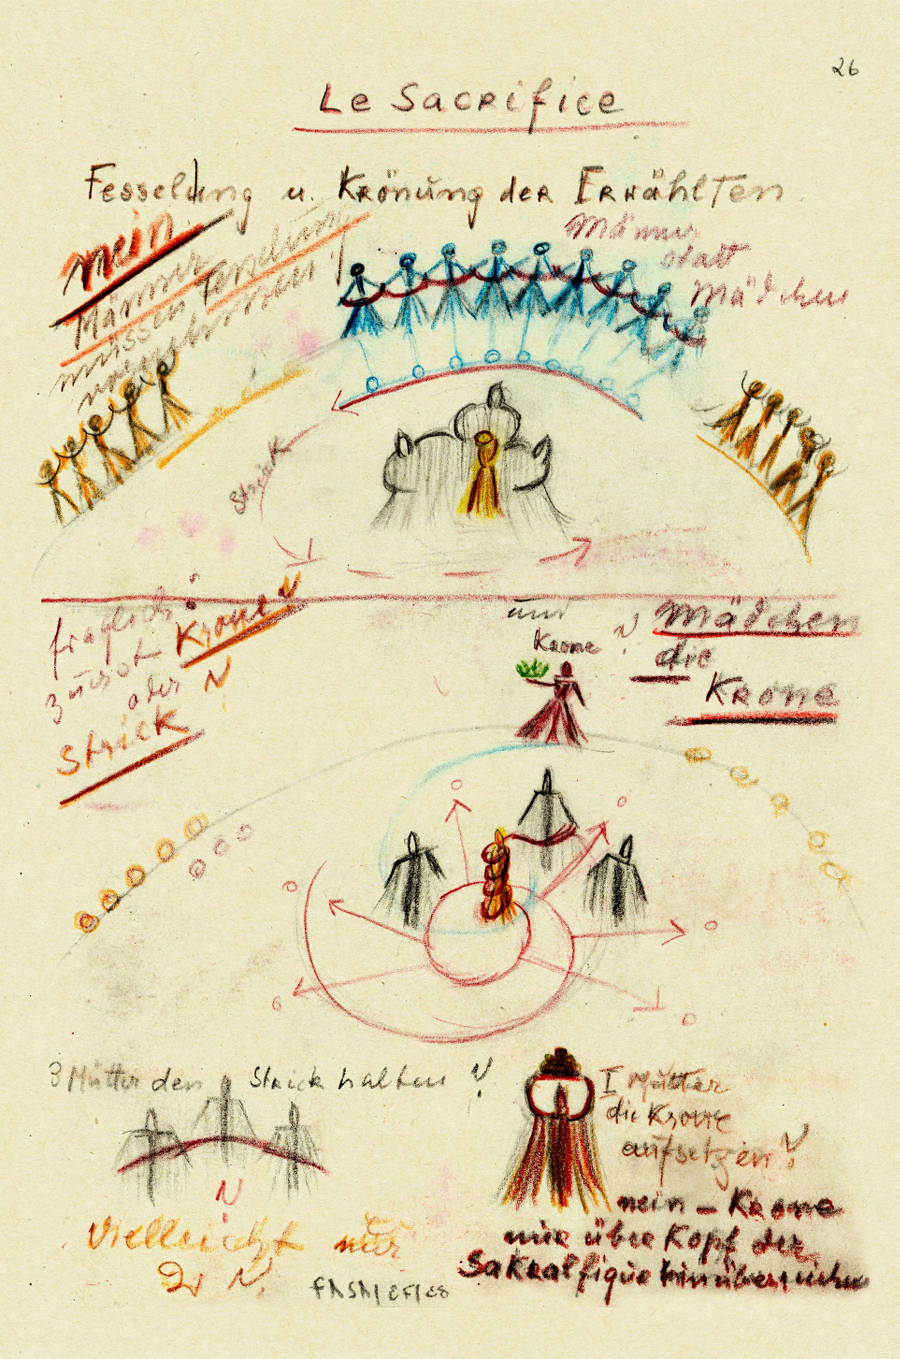 26
Le Sacrifice
Fesselung u. Krönung der Erwählten
nein
Männer
müssen Tendenz
Männer
statt
Mädchen
Strick
fraglich:
zuerst Krone
oder
Strick
und
Krone ?
Mädchen
die
Krone
3 Mütter den Strick halten ?
I Mütter
die Krone
aufsetzen ?
nein – Krone
nur über Kopf der
Sakralfigur hinüberreichen
Vielleicht nur